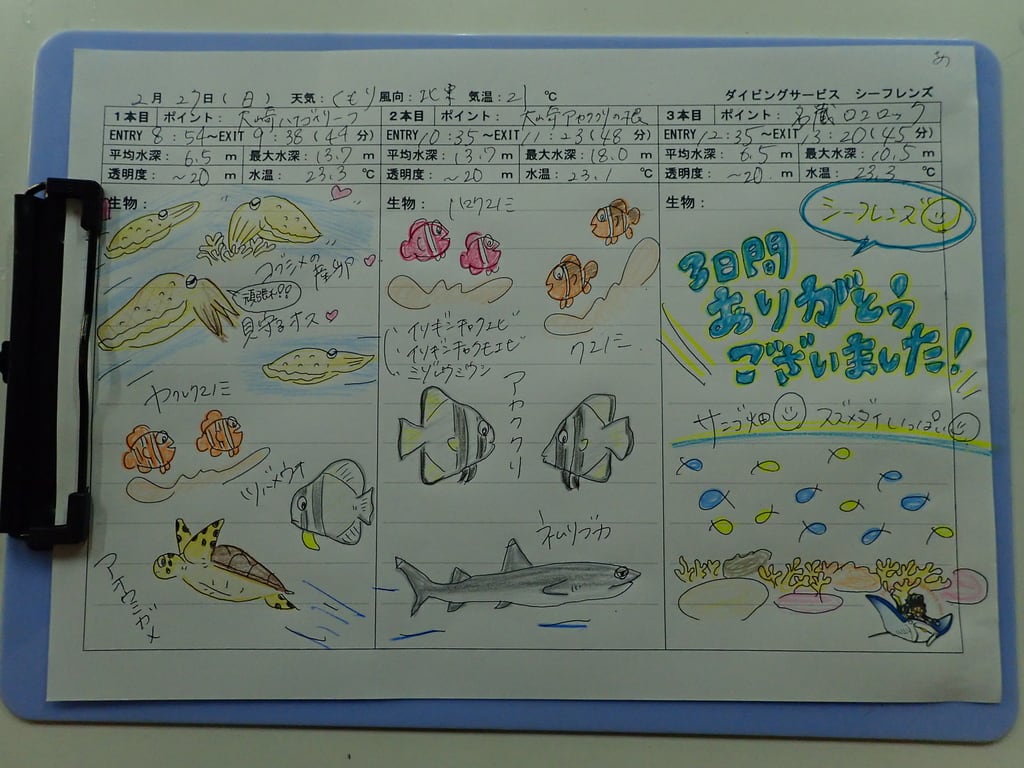 あ
2月 27日(日) 天気:くもり 風向:北東 気温:21 ℃ ダイビングサービス シーフレンズ
1本目 ポイント: 大崎ハナゴイリーフ
ENTRY 8:54~EXIT 9:38(44分)
平均水深: 6.5 m 最大水深: 13.7 m
透明度: ~20 m 水温: 23.3 ℃
生物:
コブシメの産卵
頑張れ!!
見守るオス
ヤクルクマノミ
ツバメウオ
アオウミガメ
2本目 ポイント: 大崎アカククリの根
ENTRY 10:35~EXIT 11:23(48分)
平均水深: 13.7 m 最大水深: 18.0 m
透明度: ~20 m 水温: 23.1 ℃
生物: ハマクマノミ
イソギンチャクエビ
イソギンチャクモエビ
ミゾレウミウシ
クマノミ
アカククリ
ネムリブカ
3本目 ポイント: 名蔵ロロロック
ENTRY 12:35~EXIT 13:20(45分)
平均水深: 6.5 m 最大水深: 10.5 m
透明度: ~20 m 水温: 23.3 ℃
生物:
シーフレンズ
3日間
ありがとう
ございました!
サンゴ畑 スズメダイいっぱい